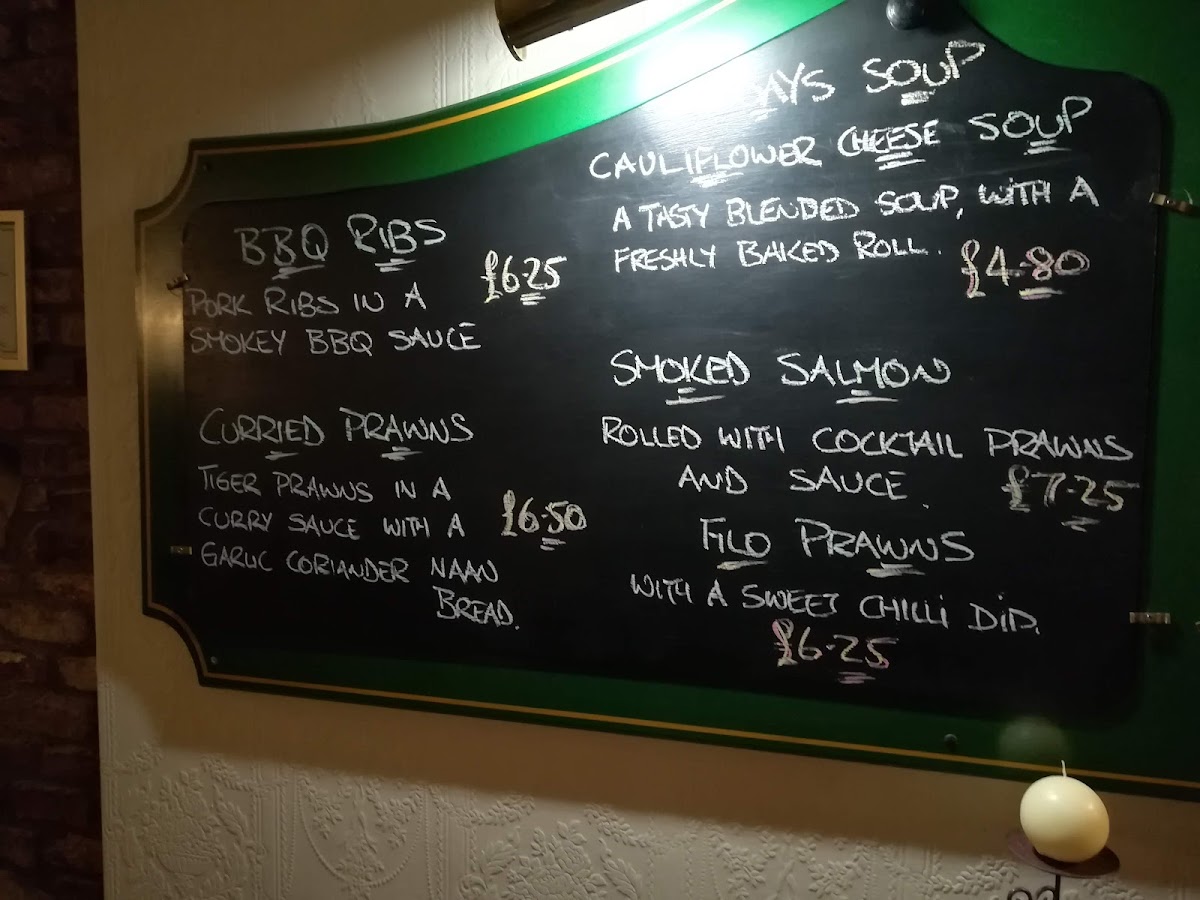 BBQ RIBS
£6.25
PORK RIBS IN A
SMOKEY BBQ SAUCE
CURRIED PRAWNS
TIGER PRAWNS IN A
CURRY SAUCE WITH A
£6.50
GARLIC CORIANDER NAAN
BREAD.
SOUP
CAULIFLOWER CHEESE SOUP
A TASTY BLENDED SOUP, WITH A
FRESHLY BAKED ROLL.
£4.80
SMOKED SALMON
ROLLED WITH COCKTAIL PRAWNS
AND SAUCE.
£7.25
FILO PRAWNS
WITH A SWEET CHILLI DIP.
£6.25